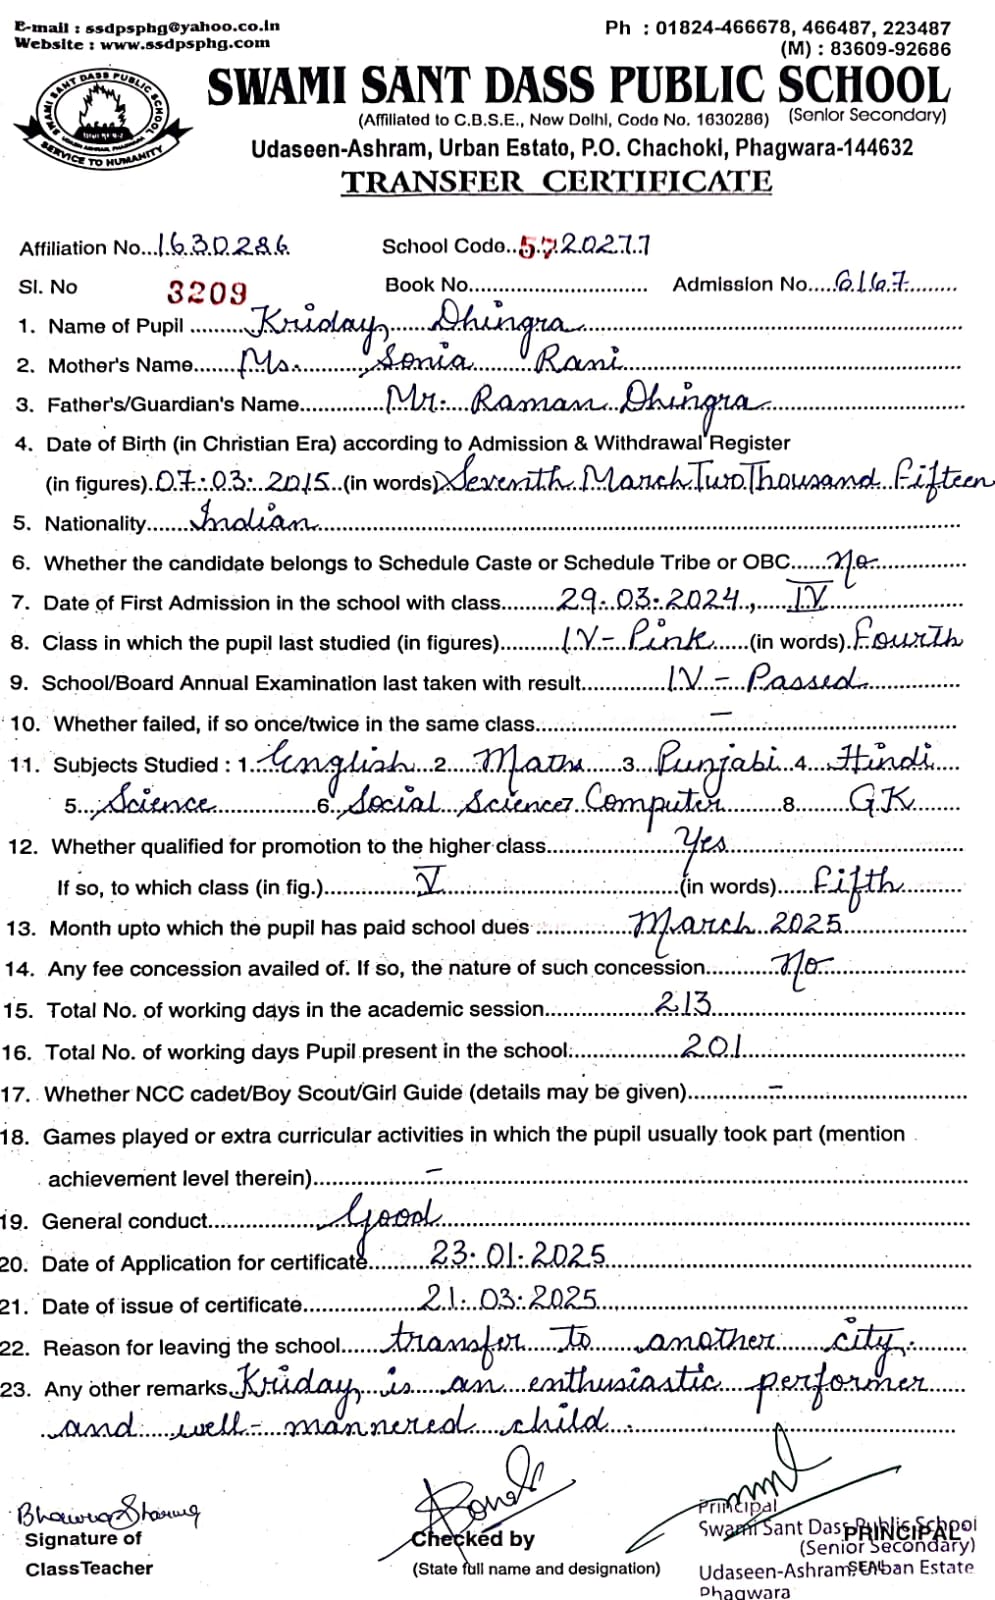 E-mail : ssdpsphg@yahoo.co.in
Ph : 01824-466678, 466487, 223487
Website : www.ssdpsphg.com
(M) : 83609-92686
SWAMI SANT DASS PUBLIC SCHOOL
SWAMI SANT DASS PUBLIC SCHOOL
SERVICE TO HUMANITY
(Affiliated to C.B.S.E., New Delhi, Code No. 1630286) (Senior Secondary)
Udaseen-Ashram, Urban Estate, P.O. Chachoki, Phagwara-144632
TRANSFER CERTIFICATE
Affiliation No...1630286 School Code..5720277
Sl. No 3209 Book No............ Admission No....6167........
1. Name of Pupil ........Kriday Dhingra
2. Mother's Name.......Ms. Sonia Rani
3. Father's/Guardian's Name............Mr. Raman Dhingra
4. Date of Birth (in Christian Era) according to Admission & Withdrawal Register
(in figures).07.03.2015..(in words) Seventh March Two Thousand Fifteen
5. Nationality......Indian
6. Whether the candidate belongs to Schedule Caste or Schedule Tribe or OBC......No
7. Date of First Admission in the school with class........29.03.2024, IV
8. Class in which the pupil last studied (in figures).........IV-Pink.....(in words).Fourth
9. School/Board Annual Examination last taken with result............IV - Passed
10. Whether failed, if so once/twice in the same class............ –
11. Subjects Studied : 1...English...2....Maths....3...Punjabi..4...Hindi
5...Science............6..Social Science 7.Computer........8.....GK
12. Whether qualified for promotion to the higher class............Yes
If so, to which class (in fig.)............V............(in words).....Fifth
13. Month upto which the pupil has paid school dues ............March 2025
14. Any fee concession availed of. If so, the nature of such concession.........No
15. Total No. of working days in the academic session............213
16. Total No. of working days Pupil present in the school............201
17. Whether NCC cadet/Boy Scout/Girl Guide (details may be given)......... –
18. Games played or extra curricular activities in which the pupil usually took part (mention
achievement level therein)............ –
19. General conduct............Good
20. Date of Application for certificate.........23.01.2025
21. Date of issue of certificate............21.03.2025
22. Reason for leaving the school.....transfer to another city.
23. Any other remarks Kriday is an enthusiastic performer
and well-mannered child.
Signature of
ClassTeacher
Checked by
(State full name and designation)
Principal
Swami Sant Dass Public School
PRINCIPAL
(Senior Secondary)
Udaseen-Ashram, Urban Estate
SEAL
Phagwara